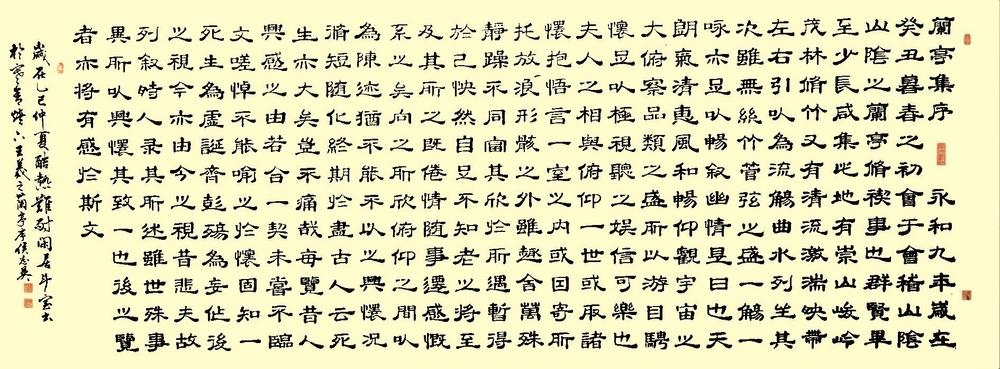 蘭亭集序 永和九年歲在
癸丑暮春之初會于會稽山陰
山陰之蘭亭脩禊事也群賢畢
至少長咸集此地有崇山峻岭
茂林脩竹又有清流激湍映帶
左右引以為流觴曲水列坐其
次雖無絲竹管弦之盛一觴一
咏亦足以暢叙幽情是日也天
朗氣清惠風和暢仰觀宇宙之
大俯察品類之盛所以游目騁
懷足以極視聽之娛信可樂也
夫人之相與俯仰一世或取諸
懷抱悟言一室之内或因寄所
托放浪形骸之外雖趣舍萬殊
靜躁不同當其欣於所遇暫得
於己快然自足不知老之將至
及其所之既倦情随事遷感慨
系之矣向之所欣俯仰之間以
為陳迹猶不能不以之興懷况
脩短随化終期於盡古人云死
生亦大矣豈不痛哉每覽昔人
興感之由若合一契未嘗不臨
文嗟悼不能喻之於懷固知一
死生為虛誕齊彭殤為妄作後
之視今亦由今之視昔悲夫故
列叙時人录其所述雖世殊事
異所以興懷其致一也後之覽
者亦將有感於斯文
歲在乙巳仲夏酷熱難耐閑居斗室書
於 王羲之蘭亭序侯志英